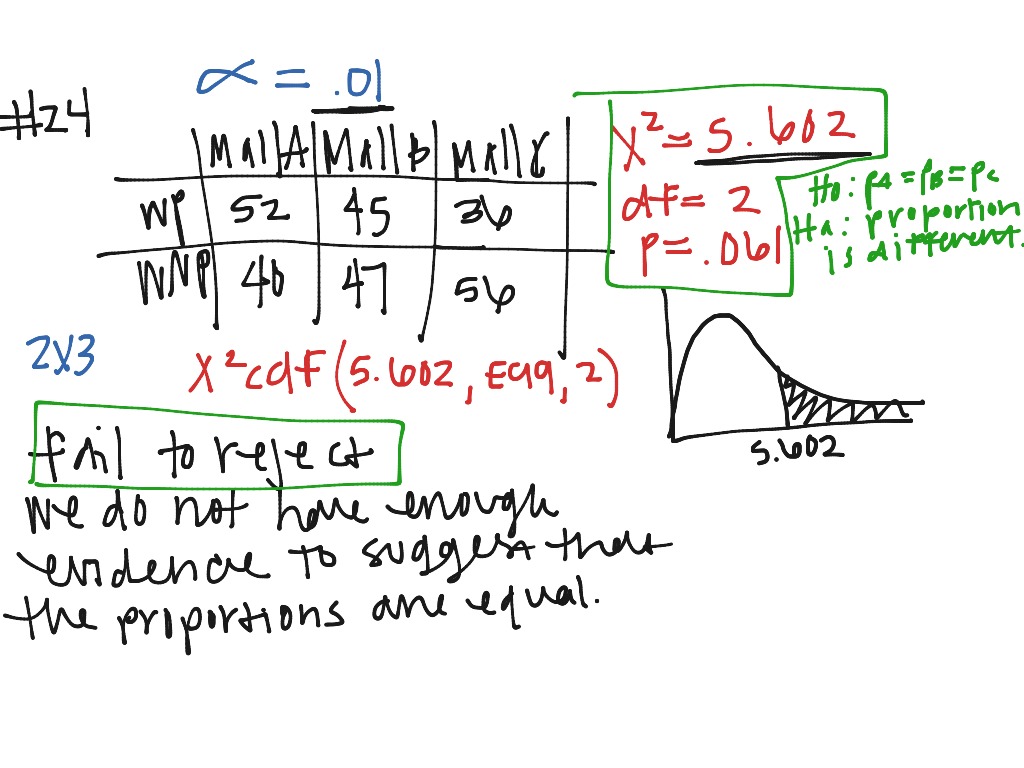 #24
α = .01
Mall A Mall B Mall C
WP 52 45 36
WNP 40 47 56
X² = 5.602
df = 2
P = .061
Ho: pA = pB = pc
Ha: proportion
is different.
2x3
X²cdf(5.602, E99, 2)
5.602
fail to reject
we do not have enough
evidence to suggest that
the proportions are equal.